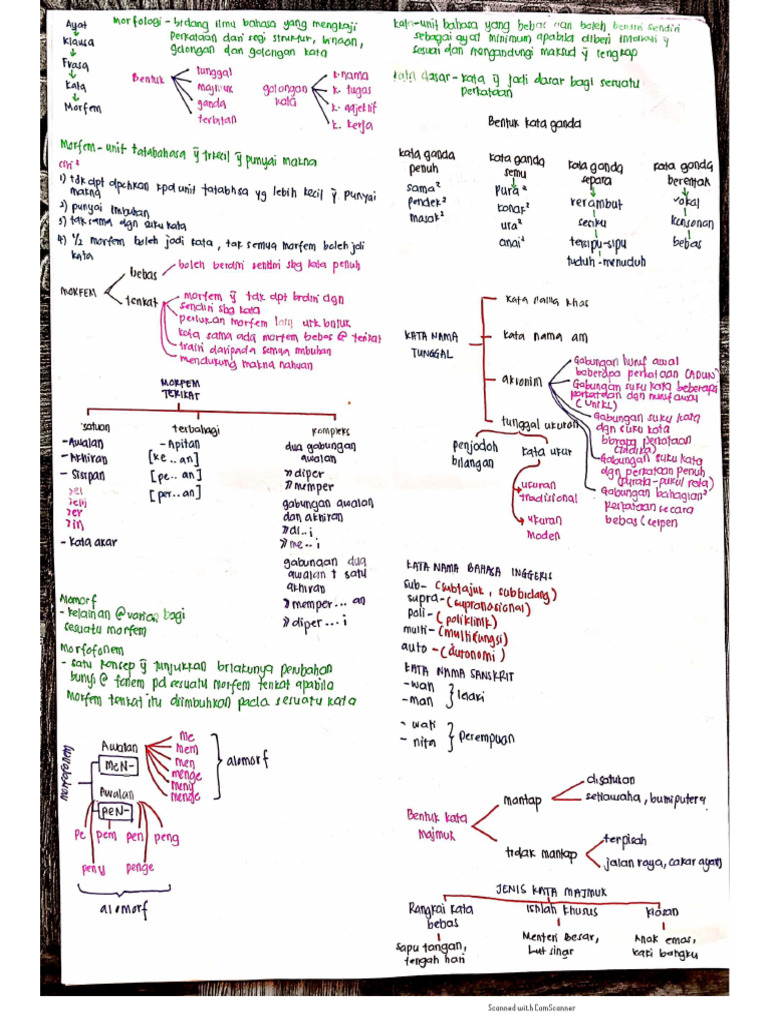 Ayat
Klausa
Frasa
Kata
Morfem
Morfologi - bidang ilmu bahasa yang mengkaji
perkataan dari segi struktur, binaan,
golongan dan golongan kata
Bentuk
tunggal
majmuk
ganda
terbitan
golongan
kata
k. nama
k. tugas
k. adjektif
k. kerja
Morfem - unit tatabahasa ȳ trkecil ȳ punyai makna
ciri²
1) tdk dpt dpchkan kpd unit tatabhsa yg lebih kecil ȳ punyai
makna
2) punyai imbuhan
3) tak sama dgn suku kata
4) ½ morfem boleh jadi kata, tak semua morfem boleh jdi
kata
MORFEM
bebas
boleh berdiri sendiri sbg kata penuh
terikat
morfem ȳ tdk dpt brdiri dgn
sendiri sbg kata
perlukan morfem lain utk bntuk
kata sama ada morfem bebas @ terikat
traini daripada semua imbuhan
mendukung makna nahuan
MORFEM
TERIKAT
satuan
- Awalan
- Akhiran
- Sisipan
>el
>em
>er
>in
- kata akar
terbahagi
- Apitan
[ke .. an]
[pe ... an]
[per ... an]
kompleks
dua gabungan
awalan
» diper
» memper
gabungan awalan
dan akhiran
» di .. i
» me .. i
gabungan dua
awalan + satu
akhiran
» memper ... an
» diper ... i
Alomorf
- kelainan @ varian bagi
sesuatu morfem
Morfofonem
- satu konsep ȳ tunjukkan brlakunya perubahan
bunyi @ fonem pd sesuatu morfem terikat apabila
morfem terikat itu diimbuhkan pada sesuatu kata
Awalan
MeN-
me
mem
men
menge
meny
menge
alomorf
Awalan
peN-
pe
pem
pen
peng
peny
penge
alomorf
kata - unit bahasa yang bebas dan boleh berdiri sendiri
sebagai ayat minimum apabila diberi intonasi ȳ
sesuai dan mengandungi maksud ȳ lengkap
kata dasar - kata ȳ jadi dasar bagi sesuatu
perkataan
Bentuk kata ganda
kata ganda
penuh
sama²
pendek²
masak²
kata ganda
semu
pura²
konar²
ura²
anai²
kata ganda
separa
rerambut
seriku
tersipu-sipu
tuduh-menuduh
kata ganda
berentak
vokal
konsonan
bebas
KATA NAMA
TUNGGAL
kata nama khas
kata nama am
akronim
Gabungan huruf awal
beberapa perkataan (ADUN)
Gabungan suku kata beberapa
perkataan dgn huruf awal
(UniKL)
Gabungan suku kata
dgn suku kata
Gabungan suku kata
dgn perkataan penuh
(purata-pukul rata)
Gabungan bahagian²
perkataan secara
bebas (cerpen
tunggal ukuran
penjodoh
bilangan
kata ukur
ukuran
tradisional
ukuran
moden
KATA NAMA BAHASA INGGERIS
sub- (subtajuk, subbidang)
supra- (supranasional)
poli- (poliklinik)
multi- (multifungsi)
auto- (autonomi)
KATA NAMA SANSKRIT
- wan
- man
lelaki
- wati
- nita
perempuan
Bentuk kata
majmuk
mantap
disatukan
setiausaha, bumiputera
tidak mantap
terpisah
jalan raya, cakar ayam
JENIS KATA MAJMUK
Rangkai kata
bebas
Sapu tangan,
tengah hari
Istilah khusus
Menteri Besar,
Lut sinar
kiasan
Anak emas,
kaki bangku
Scanned with CamScanner